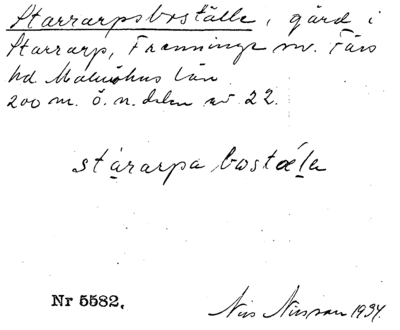 Starrarpsboställe, gård i
Starrarp, Frenninge sn. Färs
hd Malmöhus län
200 m. ö. n. delen av 22.
stárarpa bostæ̀la
Nr 5582.
Nils Nilsson 1934.